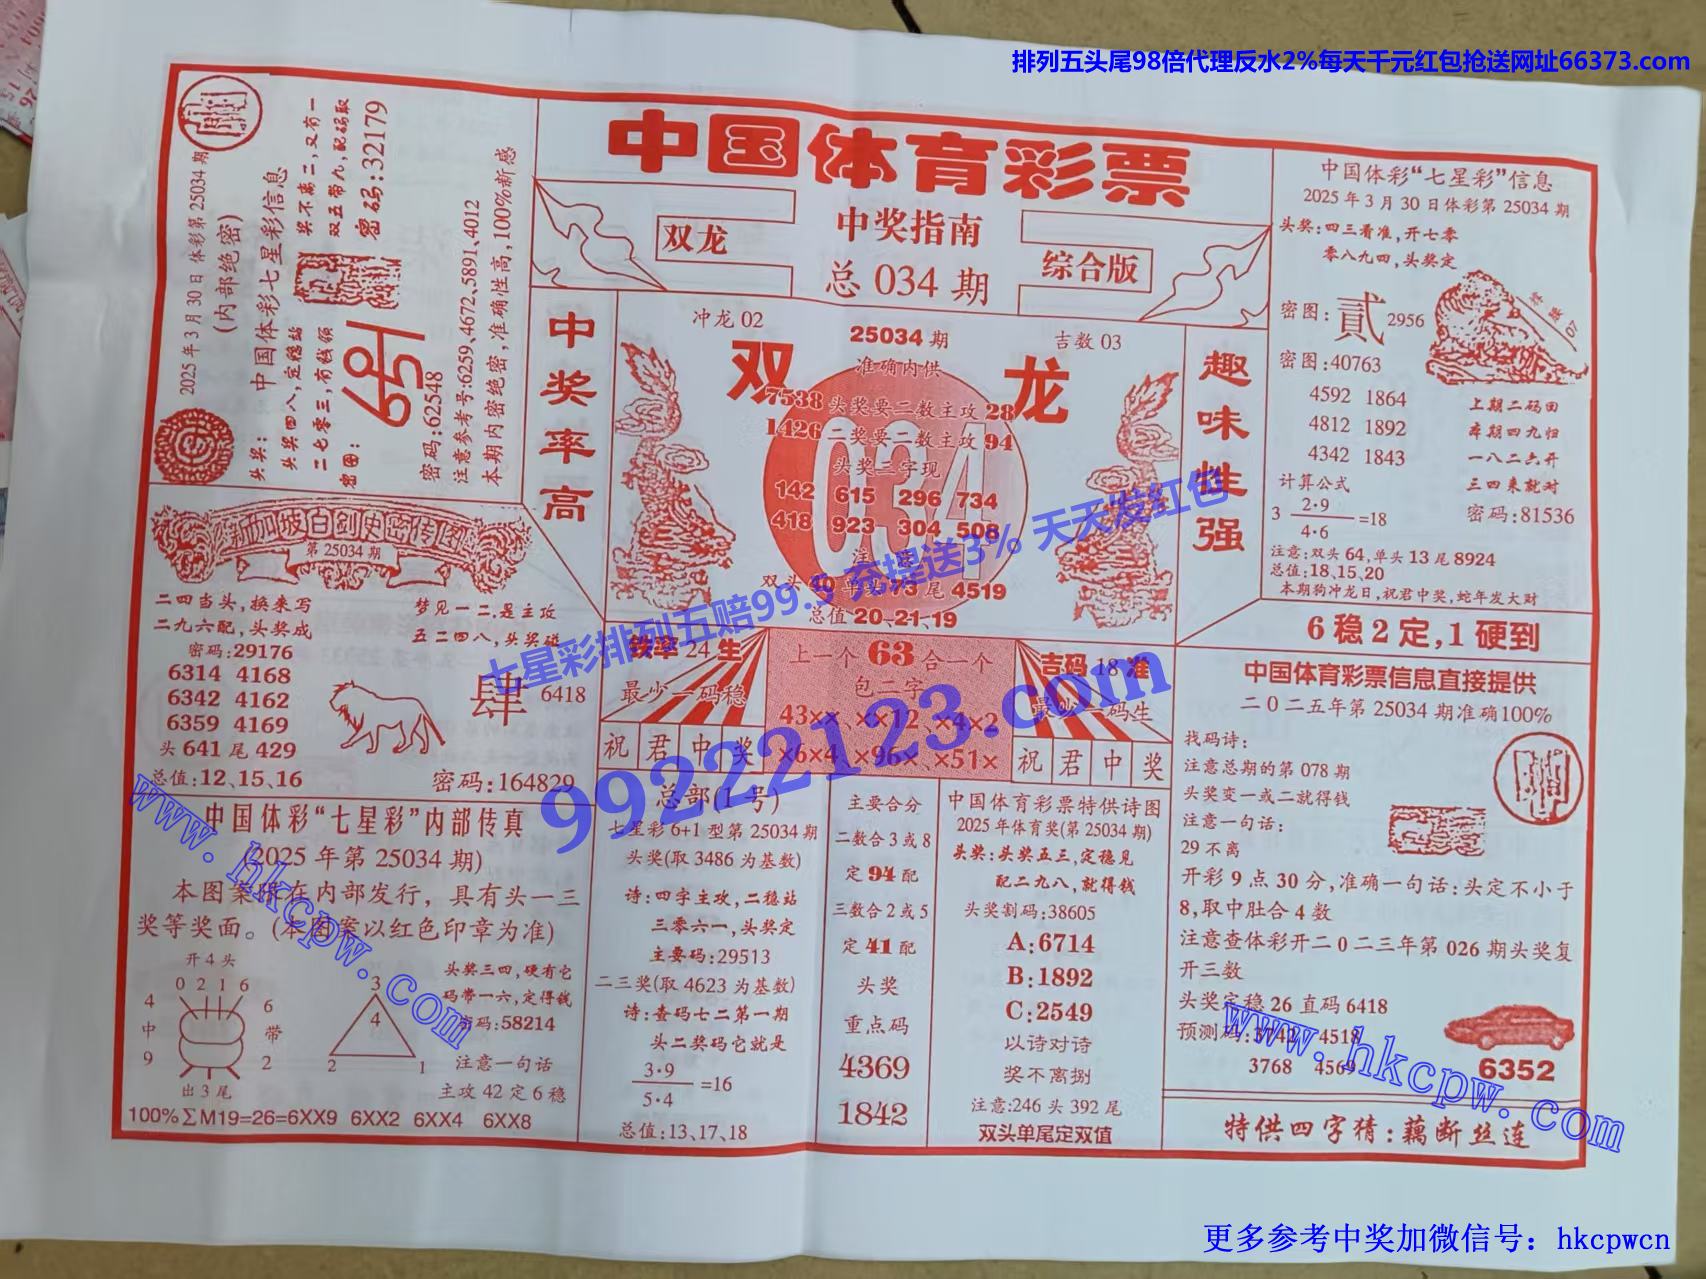 排列五头尾98倍代理反水2%每天千元红包抢送网址66373.com
2025年3月30日 体彩第25034期
(内部绝密)
中国体彩七星彩信息
头奖：
头奖四八,定稳站
二七零三,有钱领
奖不离二,又有一
双五带九,配码取
密图：
密码:32179
密码:62548
注意参考号:6259、4672、5891、4012
本期内密绝密,准确性高,100%新感
中国体育彩票
双龙
中奖指南
总 034 期
综合版
中国体彩“七星彩”信息
2025年3月30日体彩第25034期
头奖:四三看准,开七零
零八九四,头奖定
密图:
貳
2956
密图:40763
4592 1864
4812 1892
4342 1843
上期二码回
本期四九归
一八二六开
三四来就对
计算公式
3 2·9
4·6 =18
密码:81536
注意:双头64,单头13尾8924
总值:18、15、20
本期狗冲龙日,祝君中奖,蛇年发大财
中奖率高
冲龙02
25034 期
吉数03
双
准确内供
龙
7538 头奖要二数主攻 28
1426 二奖要二数主攻 94
头奖三字现
034
142 615 296 734
418 923 304 508
双头 49 单头 73 尾 4519
总值 20、21、19
趣味性强
新加坡白剑史密传图
第25034期
二四当头,换来写
二九六配,头奖成
梦见一二,是主攻
五二四八,头奖碰
密码:29176
6314 4168
6342 4162
6359 4169
头 641 尾 429
总值:12、15、16
肆
6418
密码:164829
铁率 24 生
最少一码稳
祝君中奖
上一个 63 合一个
包二字
43××、××12、×4×2
×6×4、×96×、×51×
吉码 18 准
最少一码生
祝君中奖
6稳2定,1硬到
中国体育彩票信息直接提供
二0二五年第25034期准确100%
找码诗:
注意总期的第078期
头奖变一或二就得钱
注意一句话:
29不离
开彩9点30分,准确一句话:头定不小于
8,取中肚合4数
注意查体彩开二0二三年第026期头奖复
开三数
头奖定稳26直码6418
预测码:3742 4518
3768 4569
6352
特供四字猜:藕断丝连
中国体彩“七星彩”内部传真
(2025年第25034期)
本图案跟在内部发行，具有头一三
奖等奖面。(本图案以红色印章为准)
开4头
0 2 1 6
4
中
9
6
带
2
出3尾
3
4
2
1
头奖三四,硬有它
码带一六,定得钱
密码:58214
注意一句话
主攻42定6稳
100%∑M19=26=6XX9 6XX2 6XX4 6XX8
总部(1号)
七星彩6+1型第25034期
头奖(取3486为基数)
诗:四字主攻,二稳站
三零六一,头奖定
主要码:29513
二三奖(取4623为基数)
诗:查码七二第一期
头二奖码它就是
3·9
5·4 =16
总值:13、17、18
主要合分
二数合3或8
定 94 配
三数合2或5
定 41 配
头奖
重点码
4369
1842
中国体育彩票特供诗图
2025年体育奖(第25034期)
头奖:头奖五三,定稳见
配二九八,就得钱
头奖割码:38605
A:6714
B:1892
C:2549
以诗对诗
奖不离捌
注意:246头392尾
双头单尾定双值
七星彩排列五赔99.9 充提送3% 天天发红包
99222123.com
www.hkcpw.com
www.hkcpw.com
更多参考中奖加微信号：hkcpwcn